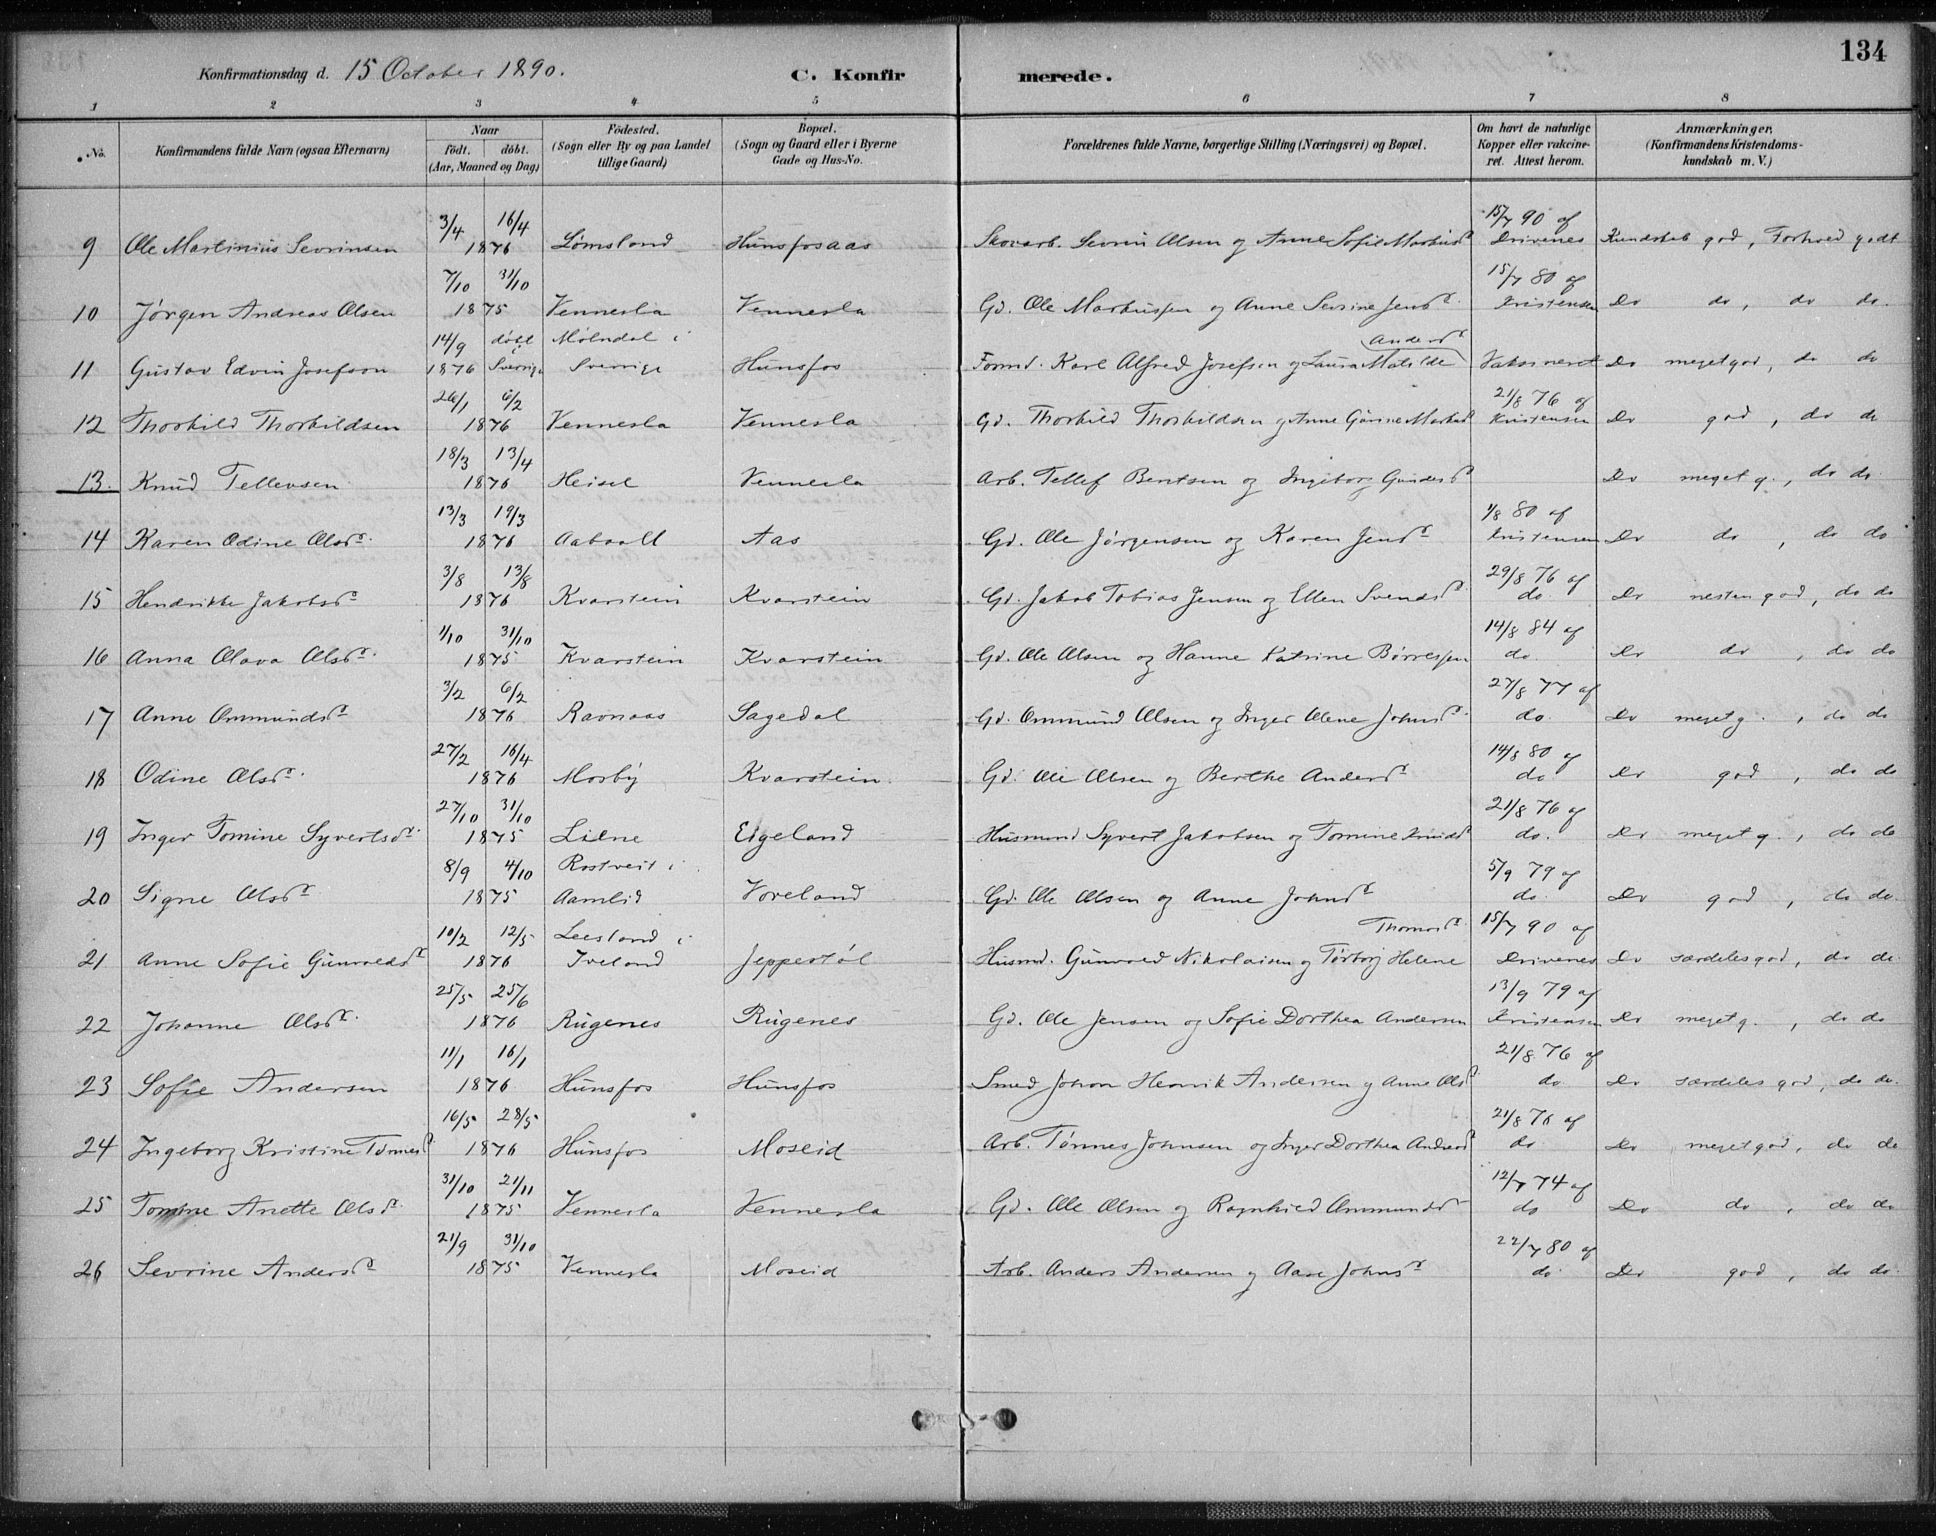 134
Konfirmationsdag d. 15 October 1890. C. Konfirmerede.
1 2 3 4 5 6 7 8
No. Konfirmandens fulde Navn (ogsaa Efternavn) Naar født. døbt. (Aar, Maaned og Dag) Fødested. (Sogn eller By og paa Landet tillige Gaard) Bopæl. (Sogn og Gaard eller i Byerne Gade og Hus-No. Forældrenes fulde Navne, borgerlige Stilling (Næringsvei) og Bopæl. Om havt de naturlige Kopper eller vakcineret. Attest herom. Anmærkninger. (Konfirmandens Kristendomskundskab m. V.)
3/4 16/4 15/7 90 af
9 Ole Martinius Sevrinsen 1876 Lømsland Hunsfosaas Skovarb. Sevrin Olsen og Anne Sofie Markusd Drivenes Kundskab god, Forhold godt
7/10 31/10 15/7 80 af
10 Jørgen Andreas Olsen 1875 Vennesla Vennesla Gd. Ole Markussen og Anne Sevrine Jensd. Kristensen Do do, do do.
14/9 døbt i Mølndal i Andersd
11 Gustav Edvin Josefson 1876 Sverrige Sverrige Hunsfos Formd. Karl Alfred Josefsen og Laura Matilde Vaksineret Do meget god, do do
26/1 6/2 21/8 76 af
12 Thorkild Thorkildsen 1876 Vennesla Vennesla Gd. Thorkild Thorkildsen og Anne Gurine Markusd Kristensen Do god, do do
18/3 13/4
13. Knud Tellevsen 1876 Heisel Vennesla Arb. Tellef Bentsen og Ingeborg Gundersd Do meget g., do do.
13/3 19/3 1/8 80 af
14 Karen Odine Olsd. 1876 Aabaalt Aas Gd. Ole Jørgensen og Karen Jensd Kristensen Do do, do do
3/8 13/8 29/8 76 af
15 Hendrikke Jakobsd 1876 Kvarstein Kvarstein Gd. Jakob Tobias Jensen og Ellen Svendsd. do. Do nesten god, do do
1/10 31/10 14/8 84 af
16 Anna Olava Olsd. 1875 Kvarstein Kvarstein Gd. Ole Olsen og Hanne Katrine Børresen do. Do do, do do
3/2 6/2 27/8 77 af
17 Anne Ommundsd 1876 Ravnaas Sagedal Gd. Ommund Olsen og Inger Olene Johnsd. do. Do meget g., do do
27/2 16/4 14/8 80 af
18 Odine Olsd. 1876 Mosby Kvarstein. Gd. Ole Olsen og Berthe Andersd do Do god, do do
27/10 31/10 21/8 76 af
19 Inger Tomine Syvertsd. 1875 Lilne Eigeland Husmand Syvert Jakobsen og Tomine Knudsd do. Do meget g., do do
8/9 4/10 Rostveit i 5/9 79 af
20 Signe Olsd. 1875 Aamlid Voreland Gd. Ole Olsen og Anne Johnsd do. Do god, do do.
10/2 12/5 Leesland i Thomasd. 15/7 90 af
21 Anne Sofie Gunvoldsd 1876 Iveland Jeppestøl Husmd. Gunvold Nikolaisen og Tørborg Helene Drivenes Do særdeles god, do do.
25/5 25/6 13/9 79 af
22 Johanne Olsd. 1876 Rugenes Rugenes Gd. Ole Jensen og Sofie Dorthea Andersen Kristensen Do meget g., do do
11/1 16/1 21/8 76 af
23 Sofie Andersen 1876 Hunsfos Hunsfos Smed Johan Henrik Andersen og Anne Olsd do Do særdeles god, do do.
16/5 28/5 21/8 76 af
24 Ingeborg Kristine Tønnesd. 1876 Hunsfos Moseid Arb. Tønnes Johnsen og Inger Dorthea Andersd do Do meget god, do do
31/10 21/11 12/7 74 af
25 Tomine Anette Olsd. 1875 Vennesla Vennesla Gd. Ole Olsen og Ragnhild Ommundsd do Do do, do do
21/9 31/10 22/7 80 af
26 Sevrine Andersd 1875 Vennesla Moseid Arb. Anders Andersen og Aase Johnsd do. Do god, do do.